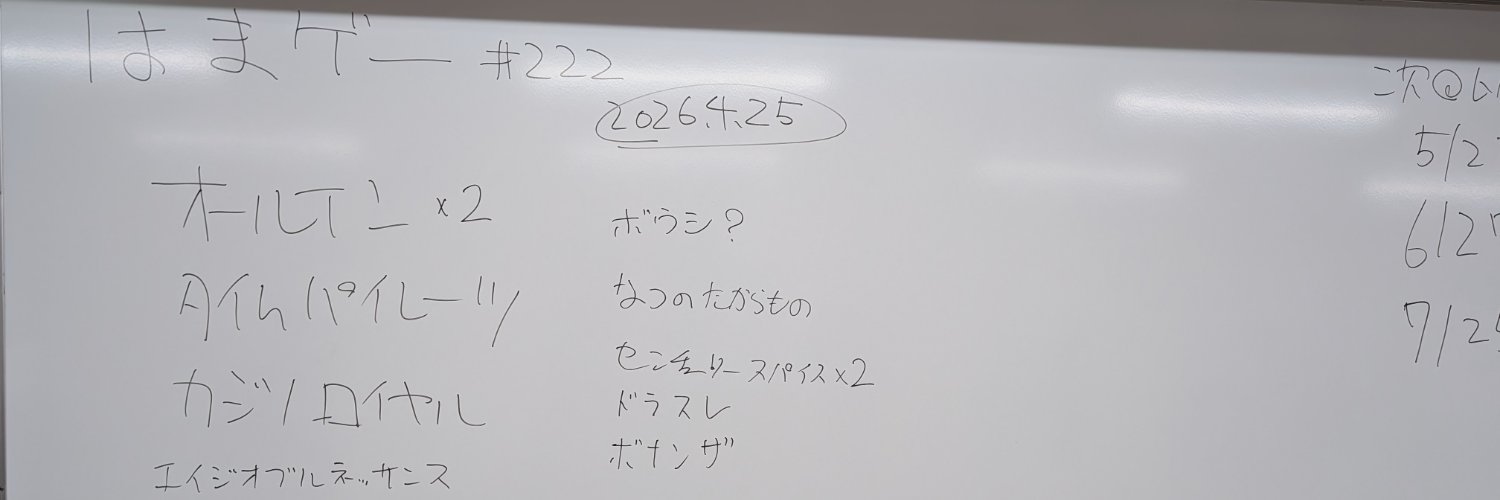 はまゲー #222
2026.4.25
オールイン ×2
タイムパイレーツ
カジノロイヤル
エイジオブルネッサンス
ボウシ?
なつのたからもの
センチュリースパイス×2
ドラスレ
ボナンザ
二次@
5/2
6/27
7/25